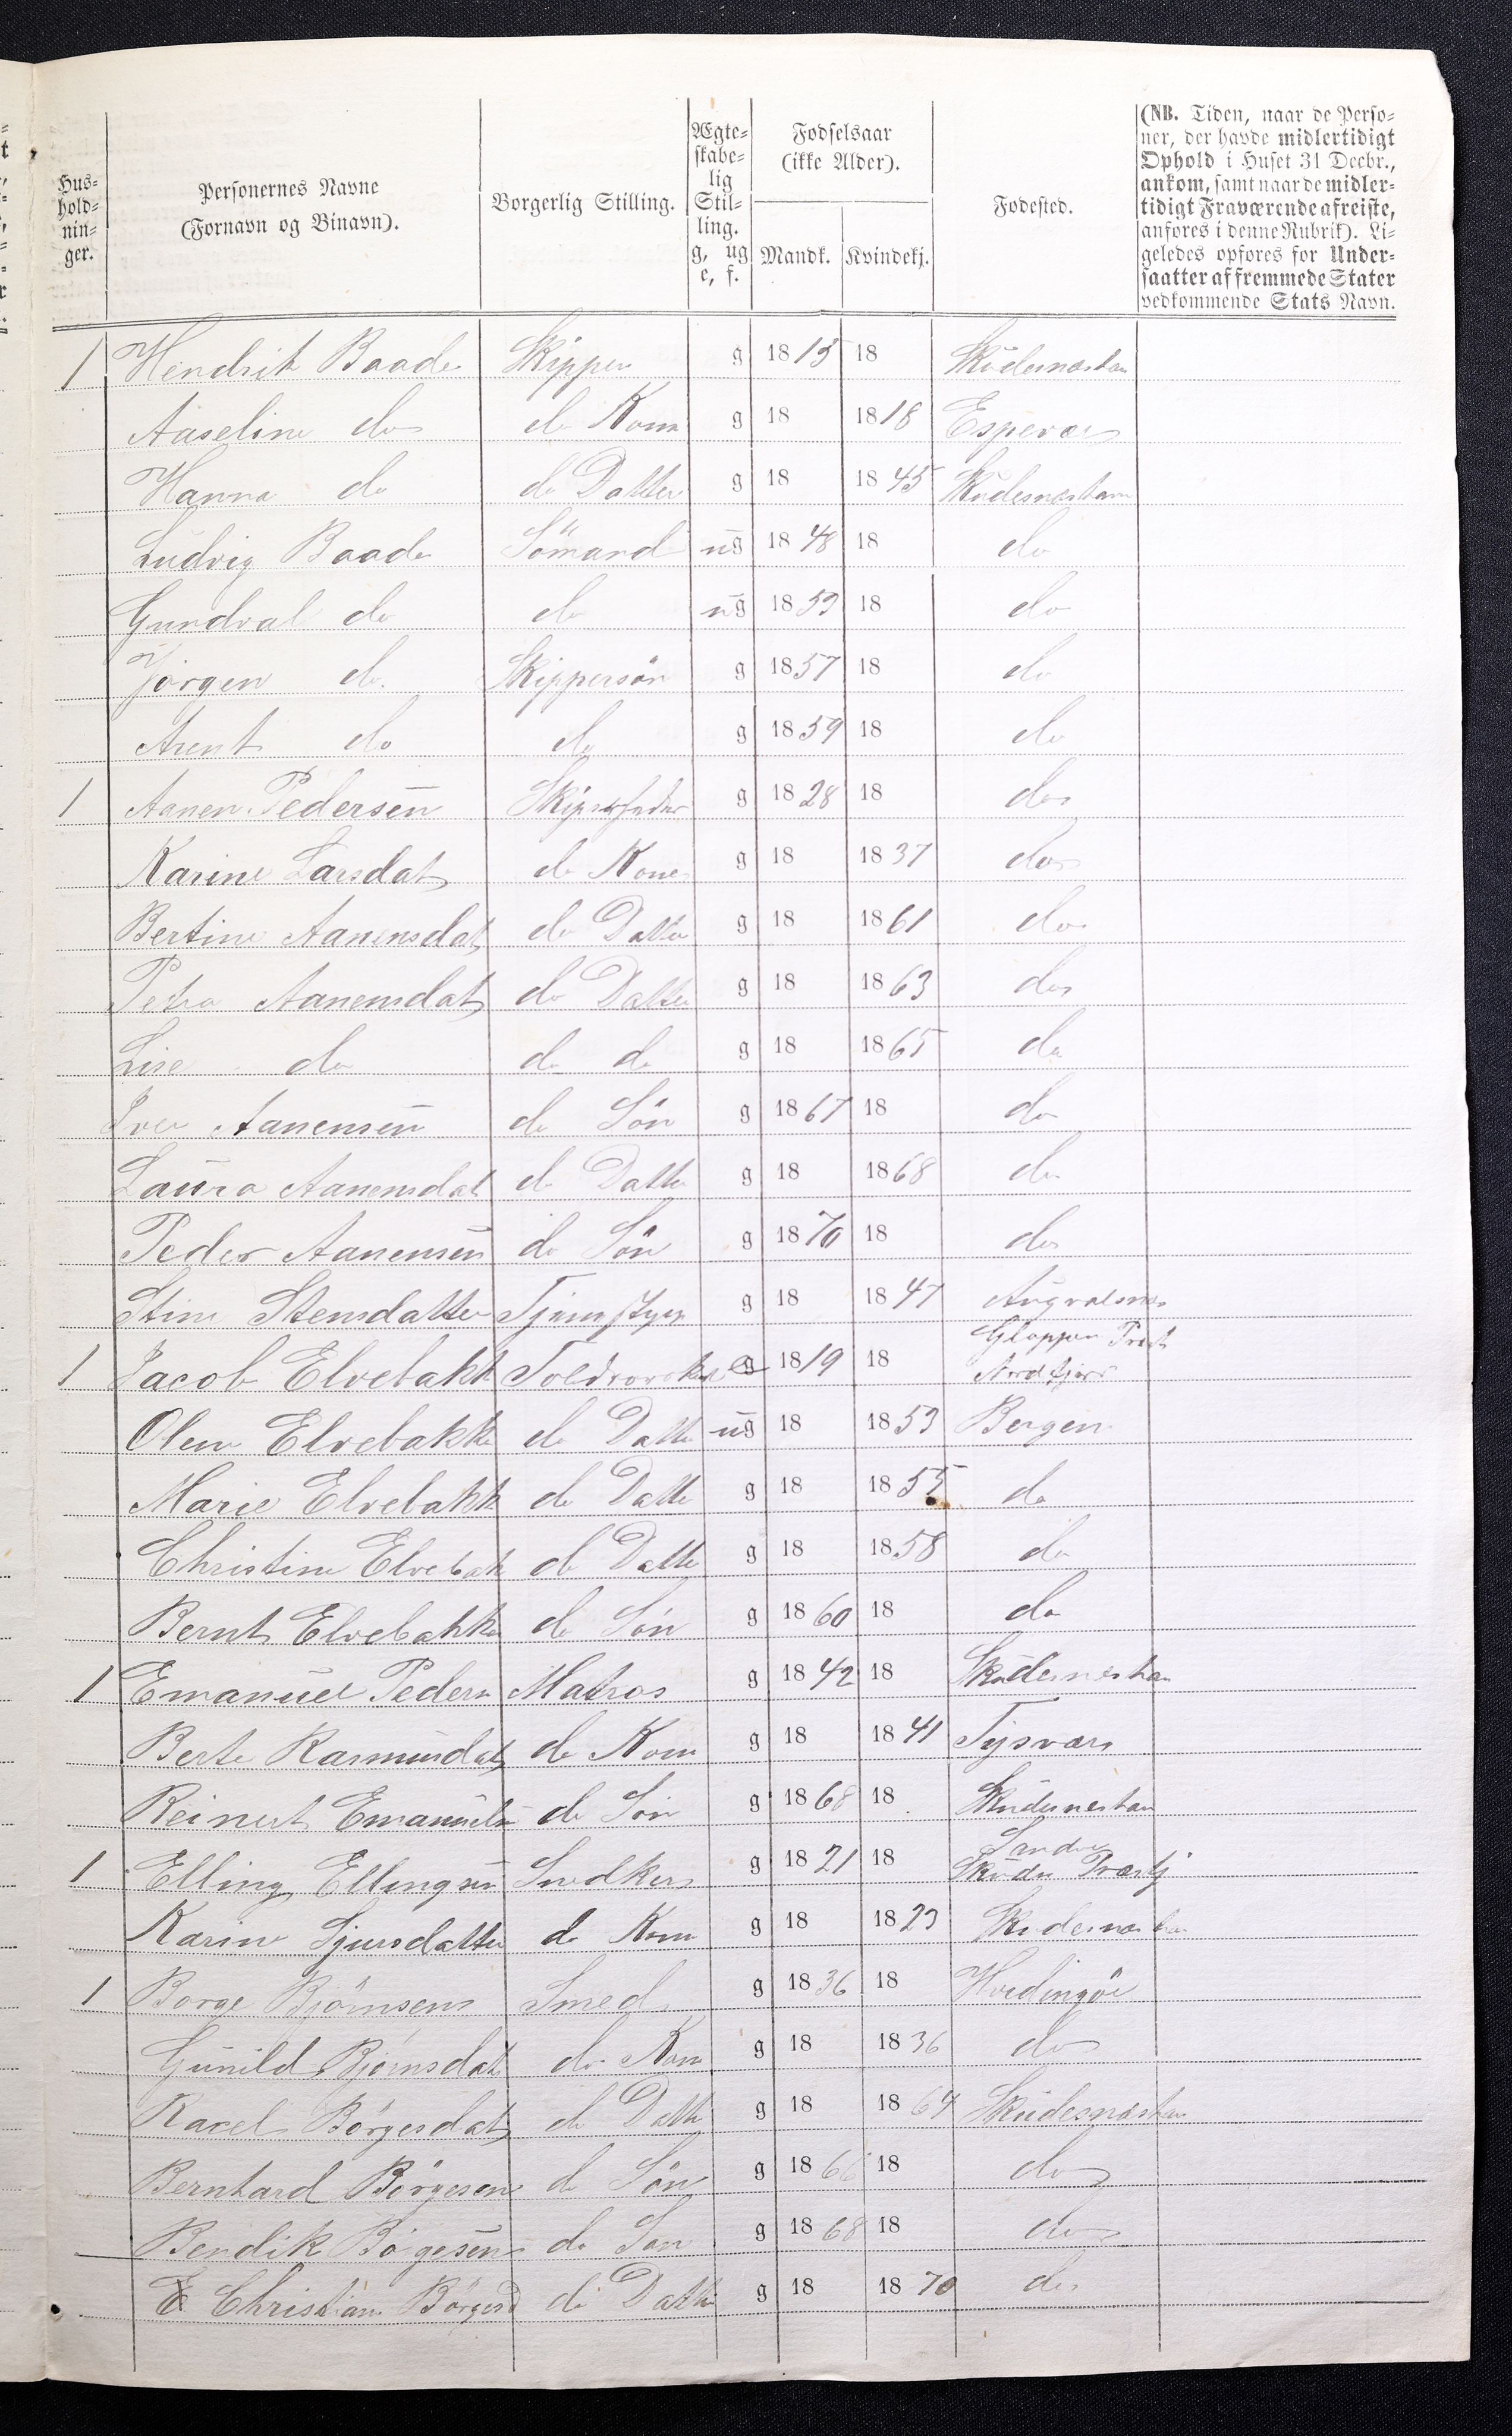 Hus-
hold-
nin-
ger.
Personernes Navne
(Fornavn og Binavn).
Borgerlig Stilling.
Ægte-
skabe-
lig
Stil-
ling.
g, ug
e, f.
Fødselsaar
(ikke Alder).
Mandk. Kvindekj.
Fødested.
(NB. Tiden, naar de Perso-
ner, der havde midlertidigt
Ophold i Huset 31 Decbr.,
ankom, samt naar de midler-
tidigt Fraværende afreiste,
anføres i denne Rubrik). Li-
geledes opføres for Under-
saatter af fremmede Stater
vedkommende Stats Navn.
1 Hendrik Baade Skipper g 1815 18 Skudesnæshavn
Aaseline do do Kone g 18 1818 Espevær
Hanna do do Datter g 18 1845 Skudesnæshavn
Ludvig Baade Sömand ug 1848 18 do
Gundval do do ug 1853 18 do
Jörgen do Skippersön g 1857 18 do
Arent do do g 1859 18 do
1 Aanen Pedersen g 1828 18 do
Karine Larsdat do Kone g 18 1837 do
Bertine Aanensdat do Datter g 18 1861 do
Petra Aanensdat do Datter g 18 1863 do
Lise do do do g 18 1865 do
Iver Aanensen do Sön g 1867 18 do
Laura Aanensdat do Datter g 18 1868 do
Peder Aanensen do Sön g 1870 18 do
Stine Stensdatter g 18 1847 Augvalsnes
1 Jacob Elvebakk e g 1819 18 Gloppen Præst
Nordfjord
Olene Elvebakke do Datte ug 18 1853 Bergen
Marie Elvebakk do Datte g 18 1855 do
Christine Elvebak do Datte g 18 1858 do
Bernt Elvebakke do Sön g 1860 18 do
1 Emanuel Peders Matros g 1842 18 Skudesneshavn
Berte Rasmusdat do Kone g 18 1841 Tysvær
Reinert Emanuels do Sön g 1868 18 Skudesneshavn
1 Elling Ellingsen Snedker g 1821 18 Sandve
Skude Præstgj
Karine Sjursdatter do Kone g 18 1823 Skudesneshavn
1 Borge Bjørnsen Smed g 1836 18 Hvidingöe
Gunild Bjørnsdat do Kone g 18 1836 do
Racel Börgesdat do Datte g 18 1864 Skudesnæshavn
Bernhard Börgesen do Sön g 1866 18 do
Bendik Börgesen do Sön g 1868 18 do
Christiane Börgesd do Datte g 18 1870 do